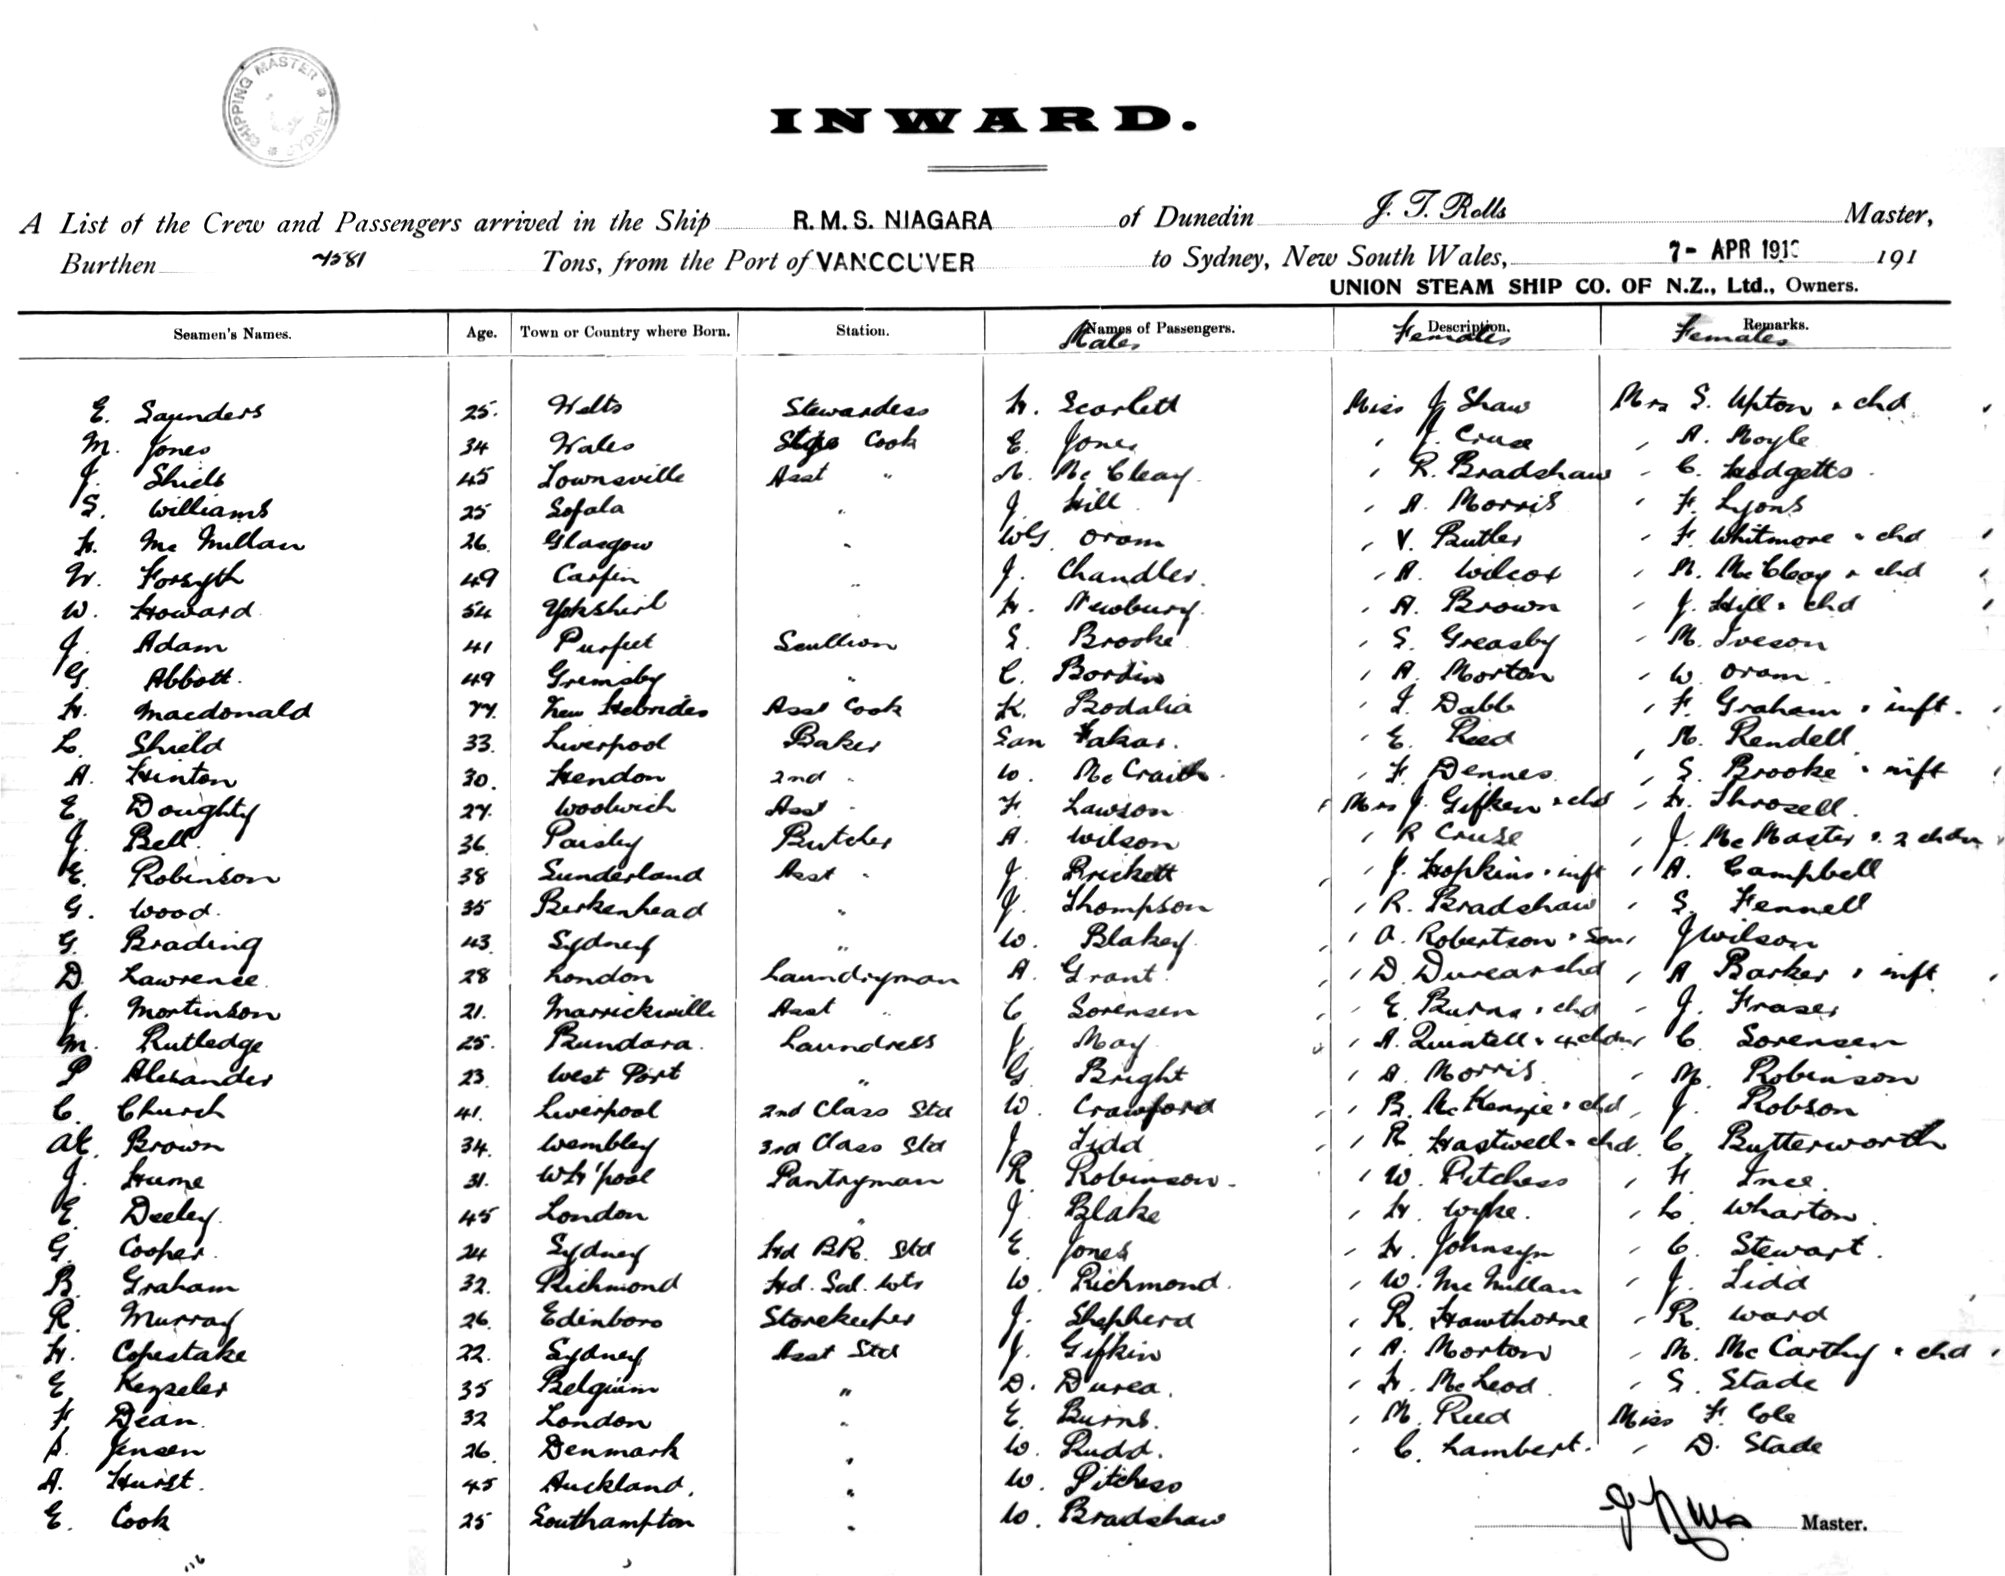 SHIPPING MASTER SYDNEY
INWARD.
A List of the Crew and Passengers arrived in the Ship R.M.S. NIAGARA of Dunedin J. T. Rolls Master,
Burthen 7581 Tons, from the Port of VANCOUVER to Sydney, New South Wales, 7 - APR 191 191
UNION STEAM SHIP CO. OF N.Z., Ltd., Owners.
Seamen's Names. Age. Town or Country where Born. Station. Names of Passengers. Description. Remarks.
Males Females Females
E. Saunders 25. Welts Stewardess H. Scarlett Miss J Shaw Mrs S. Upton & chd
M. Jones 34 Wales Cook E. Jones " J. Cruse " A. Moyle
J. Shiels 45 Townsville Asst " N. McCleay " R. Bradshaw " C. Hodgetts
S. Williams 25 Sofala " J. Hill " A. Morris " F. Lyons
H. McMillan 26. Glasgow " WG Oram " V. Butler " F. Whitmore & chd
W. Forsyth 49 Carfin " J. Chandler. " A. Wilcox " N. McCleay & chd
W. Howard 54 Yorkshire " H. Newbury. " A. Brown " J. Hill & chd
J. Adam 41 Purfeet Scullion S. Brooke " S. Greasby " M. Iveson
G. Abbott. 49 Grimsby " C. Bordin " A. Morton " W. Oram.
H. Macdonald 27. New Hebrides Asst Cook K. Bodalia " I. Dabb " F. Graham & inft.
L. Shield 33. Liverpool Baker San Fakar. " E. Reed " M. Rendell
A. Hinton 30. Hendon 2nd " W. McCraith. " F. Dennes " S. Brooke & inft
E. Doughty 27. Woolwich Asst " F. Lawson Mrs J. Gifken & chd " H. Throsell.
J. Bell. 36. Paisley Butcher A. Wilson " R Cruse " J. McMaster & 2 chdn
E. Robinson 38 Sunderland Asst " J. Prickett " J. Hopkins & inft " A. Campbell
G. Wood. 35 Berkenhead " J. Thompson " R. Bradshaw " S. Fennell
G. Brading 43. Sydney " W. Blakey. " A. Robertson & Son " J Wilson
D. Lawrence. 28 London Laundryman A. Grant. " D. Durea & chd " A Barker & inft
J. Mortinson 21. Marrickville Asst " C Sorensen " E. Burns & chd " J. Fraser
M. Rutledge 25. Bundara. Laundress J. May " A. Quintell & 4 chdn " C. Sorensen
P Alexander 23. West Port " G. Bright " A. Morris " M. Robinson
C. Church 41. Liverpool 2nd Class Std W. Crawford " B. McKenzie & chd " J. Robson
Brown 34. Wembley 3rd Class Std J. Tidd " R. Hastwell & chd " C. Butterworth
J. Hume 31. Wh'pool Pantryman R Robinson. " W. Pitchess " H Ince.
E. Deeley. 45 London " J. Blake " H. Wyke. " L. Wharton.
G. Cooper. 24 Sydney Hd B.R. Std E. Jones " H. Johnsyn " C. Stewart.
B. Graham 32. Richmond Hd. Sal. Wtr W. Richmond. " W. McMillan " J. Tidd
R. Murray 26. Edinboro Storekeeper J. Shepherd " R. Hawthorne " R. Ward
H. Copestake 22. Sydney Asst Std J. Gifkin " A. Morton " M. McCarthy & chd
E. Keyseler 35 Belgium " D. Durea. " H. McLeod. " S. Stade
F Dean. 32 London " E. Burns. " M. Reed Miss F. Cole
Jensen 26. Denmark " W. Rudd. " C. Lambert. " D. Stade
A. Hurst. 45 Auckland. " W. Pitchess
E. Cook 25 Southampton " W. Bradshaw
Master.